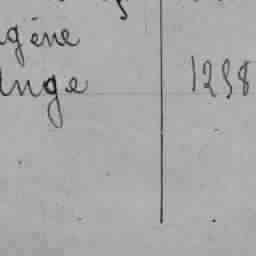 gène
Ange 1298